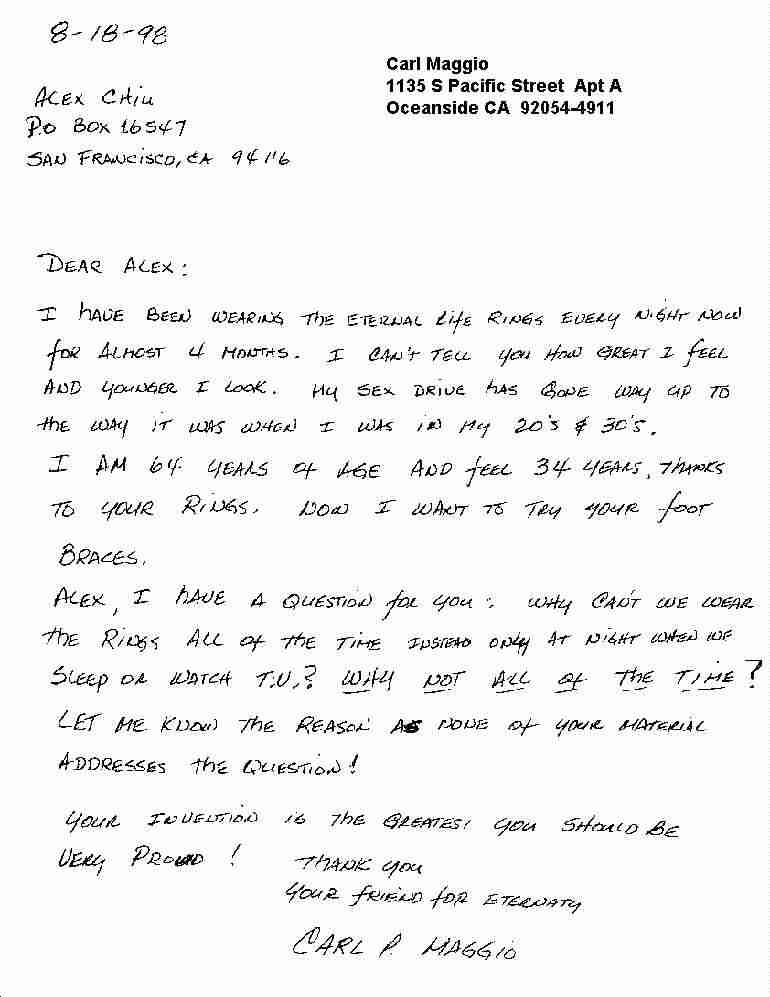 8-18-98
Carl Maggio
1135 S Pacific Street Apt A
Oceanside CA 92054-4911
ALEX CHIU
P.O BOX 16547
SAN FRANCISCO, CA 94116
DEAR ALEX:
I HAVE BEEN WEARING THE ETERNAL LIFE RINGS EVERY NIGHT NOW
FOR ALMOST 4 MONTHS. I CAN'T TELL YOU HOW GREAT I FEEL
AND YOUNGER I LOOK. MY SEX DRIVE HAS GONE WAY UP TO
THE WAY IT WAS WHEN I WAS IN MY 20'S & 30'S.
I AM 64 YEARS OF AGE AND FEEL 34 YEARS, THANKS
TO YOUR RINGS. NOW I WANT TO TRY YOUR FOOT
BRACES.
ALEX, I HAVE A QUESTION FOR YOU: WHY CAN'T WE WEAR
THE RINGS ALL OF THE TIME INSTEAD ONLY AT NIGHT WHEN WE
SLEEP OR WATCH T.V.? WHY NOT ALL OF THE TIME?
LET ME KNOW THE REASON AS NONE OF YOUR MATERIAL
ADDRESSES THE QUESTION!
YOUR INVENTION IS THE GREATEST YOU SHOULD BE
VERY PROUD! THANK YOU
YOUR FRIEND FOR ETERNATY
CARL P. MAGGIO